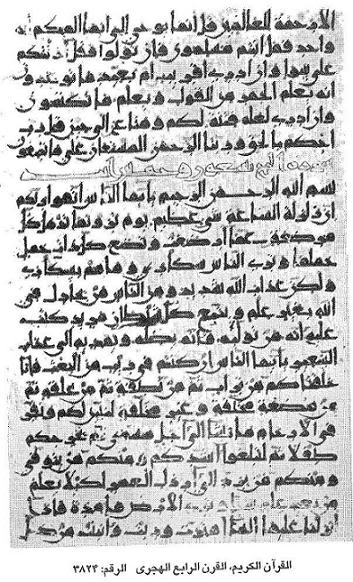 الا رحمة للعالمين قل انما يوحى الي انما الهكم اله
واحد فهل انتم مسلمون فان تولوا فقل اذنتكم
على سوا وان ادري اقريب ام بعيد ما توعدون
انه يعلم الجهر من القول ويعلم ما تكتمون
وان ادري لعله فتنة لكم ومتاع الى حين قل رب
احكم بالحق وربنا الرحمن المستعان على ما تصفون
سورة الحج سبعون وخمس
بسم الله الرحمن الرحيم يايها الناس اتقوا ربكم
ان زلزلة الساعة شي عظيم يوم ترونها تذهل كل
مرضعة عما ارضعت وتضع كل ذات حمل
حملها وترى الناس سكارى وما هم بسكارى
ولكن عذاب الله شديد ومن الناس من يجادل في
الله بغير علم ويتبع كل شيطان مريد كتب
عليه انه من تولاه فانه يضله ويهديه الى عذاب
السعير يايها الناس ان كنتم في ريب من البعث فانا
خلقناكم من تراب ثم من نطفة ثم من علقة ثم
من مضغة مخلقة وغير مخلقة لنبين لكم ونقر
في الارحام ما نشا الى اجل مسمى ثم نخرجكم
طفلا ثم لتبلغوا اشدكم ومنكم من يتوفى
ومنكم من يرد الى ارذل العمر لكيلا يعلم
من بعد علم شيا وترى الارض هامدة فاذا
انزلنا عليها الما اهتزت وربت وانبتت من كل
القرآن الكريم، القرن الرابع الهجري الرقم: ۳۸۲۴